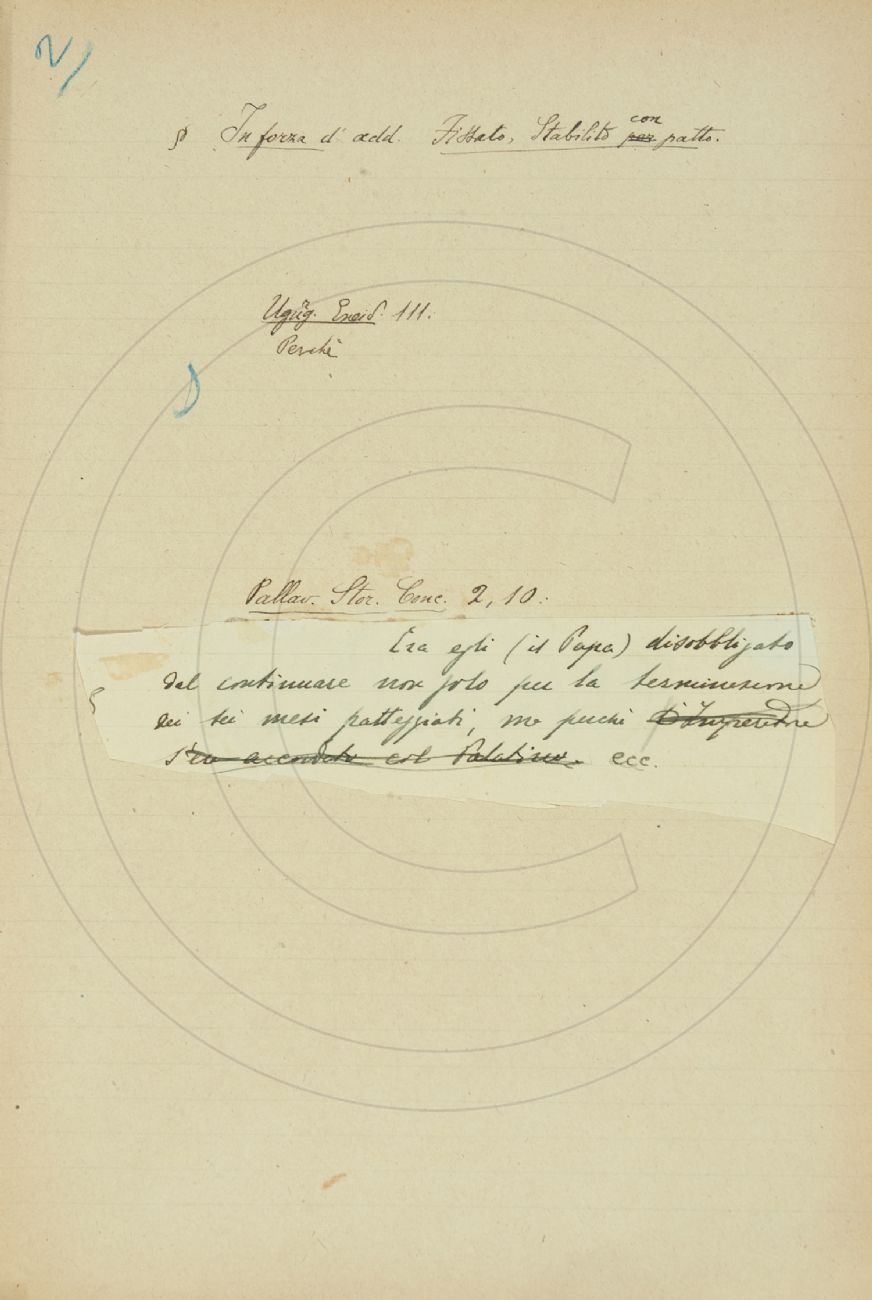 2)
§ In forza d' add. Fissato, Stabilito con per patto.
Ugurg. Eneid. 111.
Perchè
Pallav. Stor. Conc. 2, 10.
Era egli (il Papa) disobbligato
dal continuare non solo per la terminazione
dei sei mesi patteggiati, ma perchè l'Imperadore
s'era accordato col Palatino. ecc.